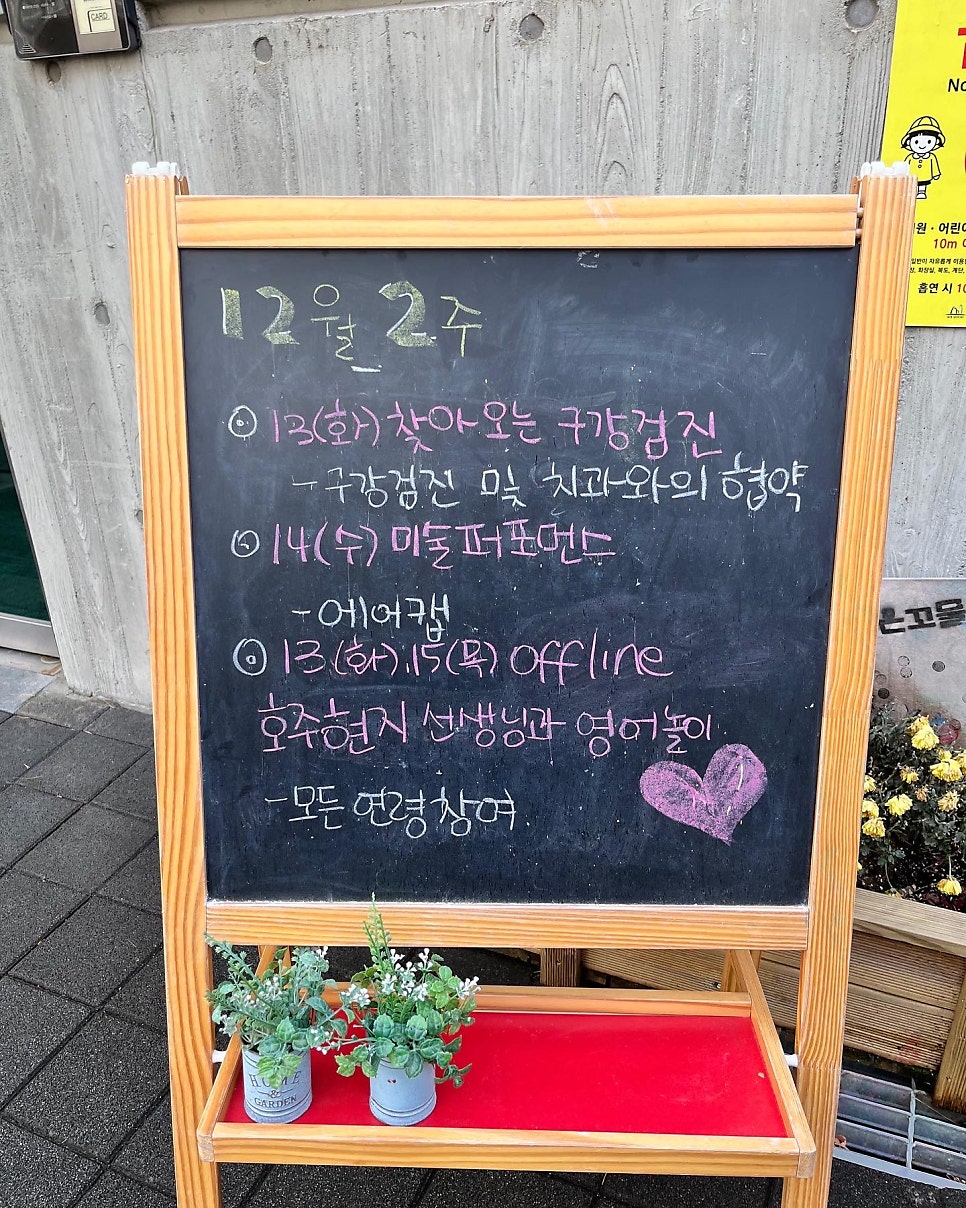 CARD
12월 2주
⊙ 13(화) 찾아오는 구강검진
- 구강검진 및 치과와의 협약
⊙ 14(수) 미술퍼포먼스
- 에어캡
⊙ 13(화), 15(목) offline
호주현지 선생님과 영어놀이
- 모든 연령 참여
HOME
&
GARDEN
No
원 · 어린이
10m
흡연 시 10
은꼬물